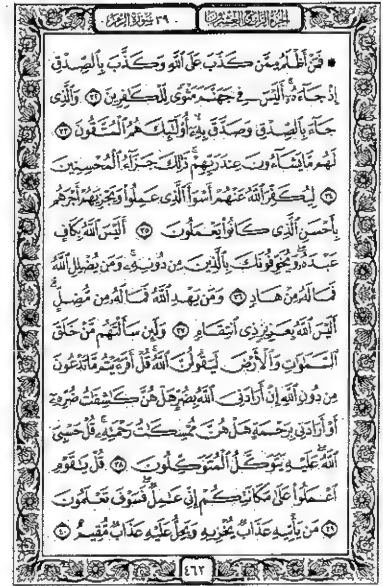 الجزء الرابع والعشرون ٣٩ سورة الزمر
۞ فَمَنْ أَظْلَمُ مِمَّن كَذَبَ عَلَى ٱللَّهِ وَكَذَّبَ بِٱلصِّدْقِ
إِذْ جَآءَهُۥٓ ۚ أَلَيْسَ فِى جَهَنَّمَ مَثْوًى لِّلْكَـٰفِرِينَ ٣٢ وَٱلَّذِى
جَآءَ بِٱلصِّدْقِ وَصَدَّقَ بِهِۦٓ ۙ أُو۟لَـٰٓئِكَ هُمُ ٱلْمُتَّقُونَ ٣٣
لَهُم مَّا يَشَآءُونَ عِندَ رَبِّهِمْ ۚ ذَٰلِكَ جَزَآءُ ٱلْمُحْسِنِينَ
٣٤ لِيُكَفِّرَ ٱللَّهُ عَنْهُمْ أَسْوَأَ ٱلَّذِى عَمِلُوا۟ وَيَجْزِيَهُمْ أَجْرَهُم
بِأَحْسَنِ ٱلَّذِى كَانُوا۟ يَعْمَلُونَ ٣٥ أَلَيْسَ ٱللَّهُ بِكَافٍ
عَبْدَهُۥ ۖ وَيُخَوِّفُونَكَ بِٱلَّذِينَ مِن دُونِهِۦ ۚ وَمَن يُضْلِلِ ٱللَّهُ
فَمَا لَهُۥ مِنْ هَادٍ ٣٦ وَمَن يَهْدِ ٱللَّهُ فَمَا لَهُۥ مِن مُّضِلٍّ ۗ
أَلَيْسَ ٱللَّهُ بِعَزِيزٍ ذِى ٱنتِقَامٍ ٣٧ وَلَئِن سَأَلْتَهُم مَّنْ خَلَقَ
ٱلسَّمَـٰوَٰتِ وَٱلْأَرْضَ لَيَقُولُنَّ ٱللَّهُ ۚ قُلْ أَفَرَءَيْتُم مَّا تَدْعُونَ
مِن دُونِ ٱللَّهِ إِنْ أَرَادَنِىَ ٱللَّهُ بِضُرٍّ هَلْ هُنَّ كَـٰشِفَـٰتُ ضُرِّهِۦٓ
أَوْ أَرَادَنِى بِرَحْمَةٍ هَلْ هُنَّ مُمْسِكَـٰتُ رَحْمَتِهِۦ ۚ قُلْ حَسْبِىَ
ٱللَّهُ ۖ عَلَيْهِ يَتَوَكَّلُ ٱلْمُتَوَكِّلُونَ ٣٨ قُلْ يَـٰقَوْمِ
ٱعْمَلُوا۟ عَلَىٰ مَكَانَتِكُمْ إِنِّى عَـٰمِلٌ ۖ فَسَوْفَ تَعْلَمُونَ
٣٩ مَن يَأْتِيهِ عَذَابٌ يُخْزِيهِ وَيَحِلُّ عَلَيْهِ عَذَابٌ مُّقِيمٌ ٤٠
٤٦٢